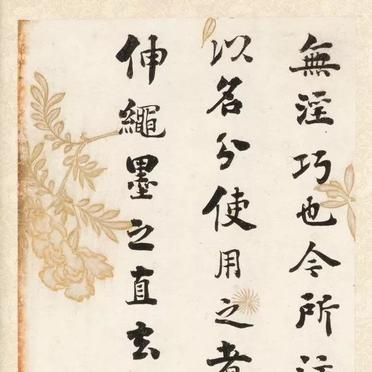 無淫巧也今所
以名分使用之者
伸繩墨之直玄